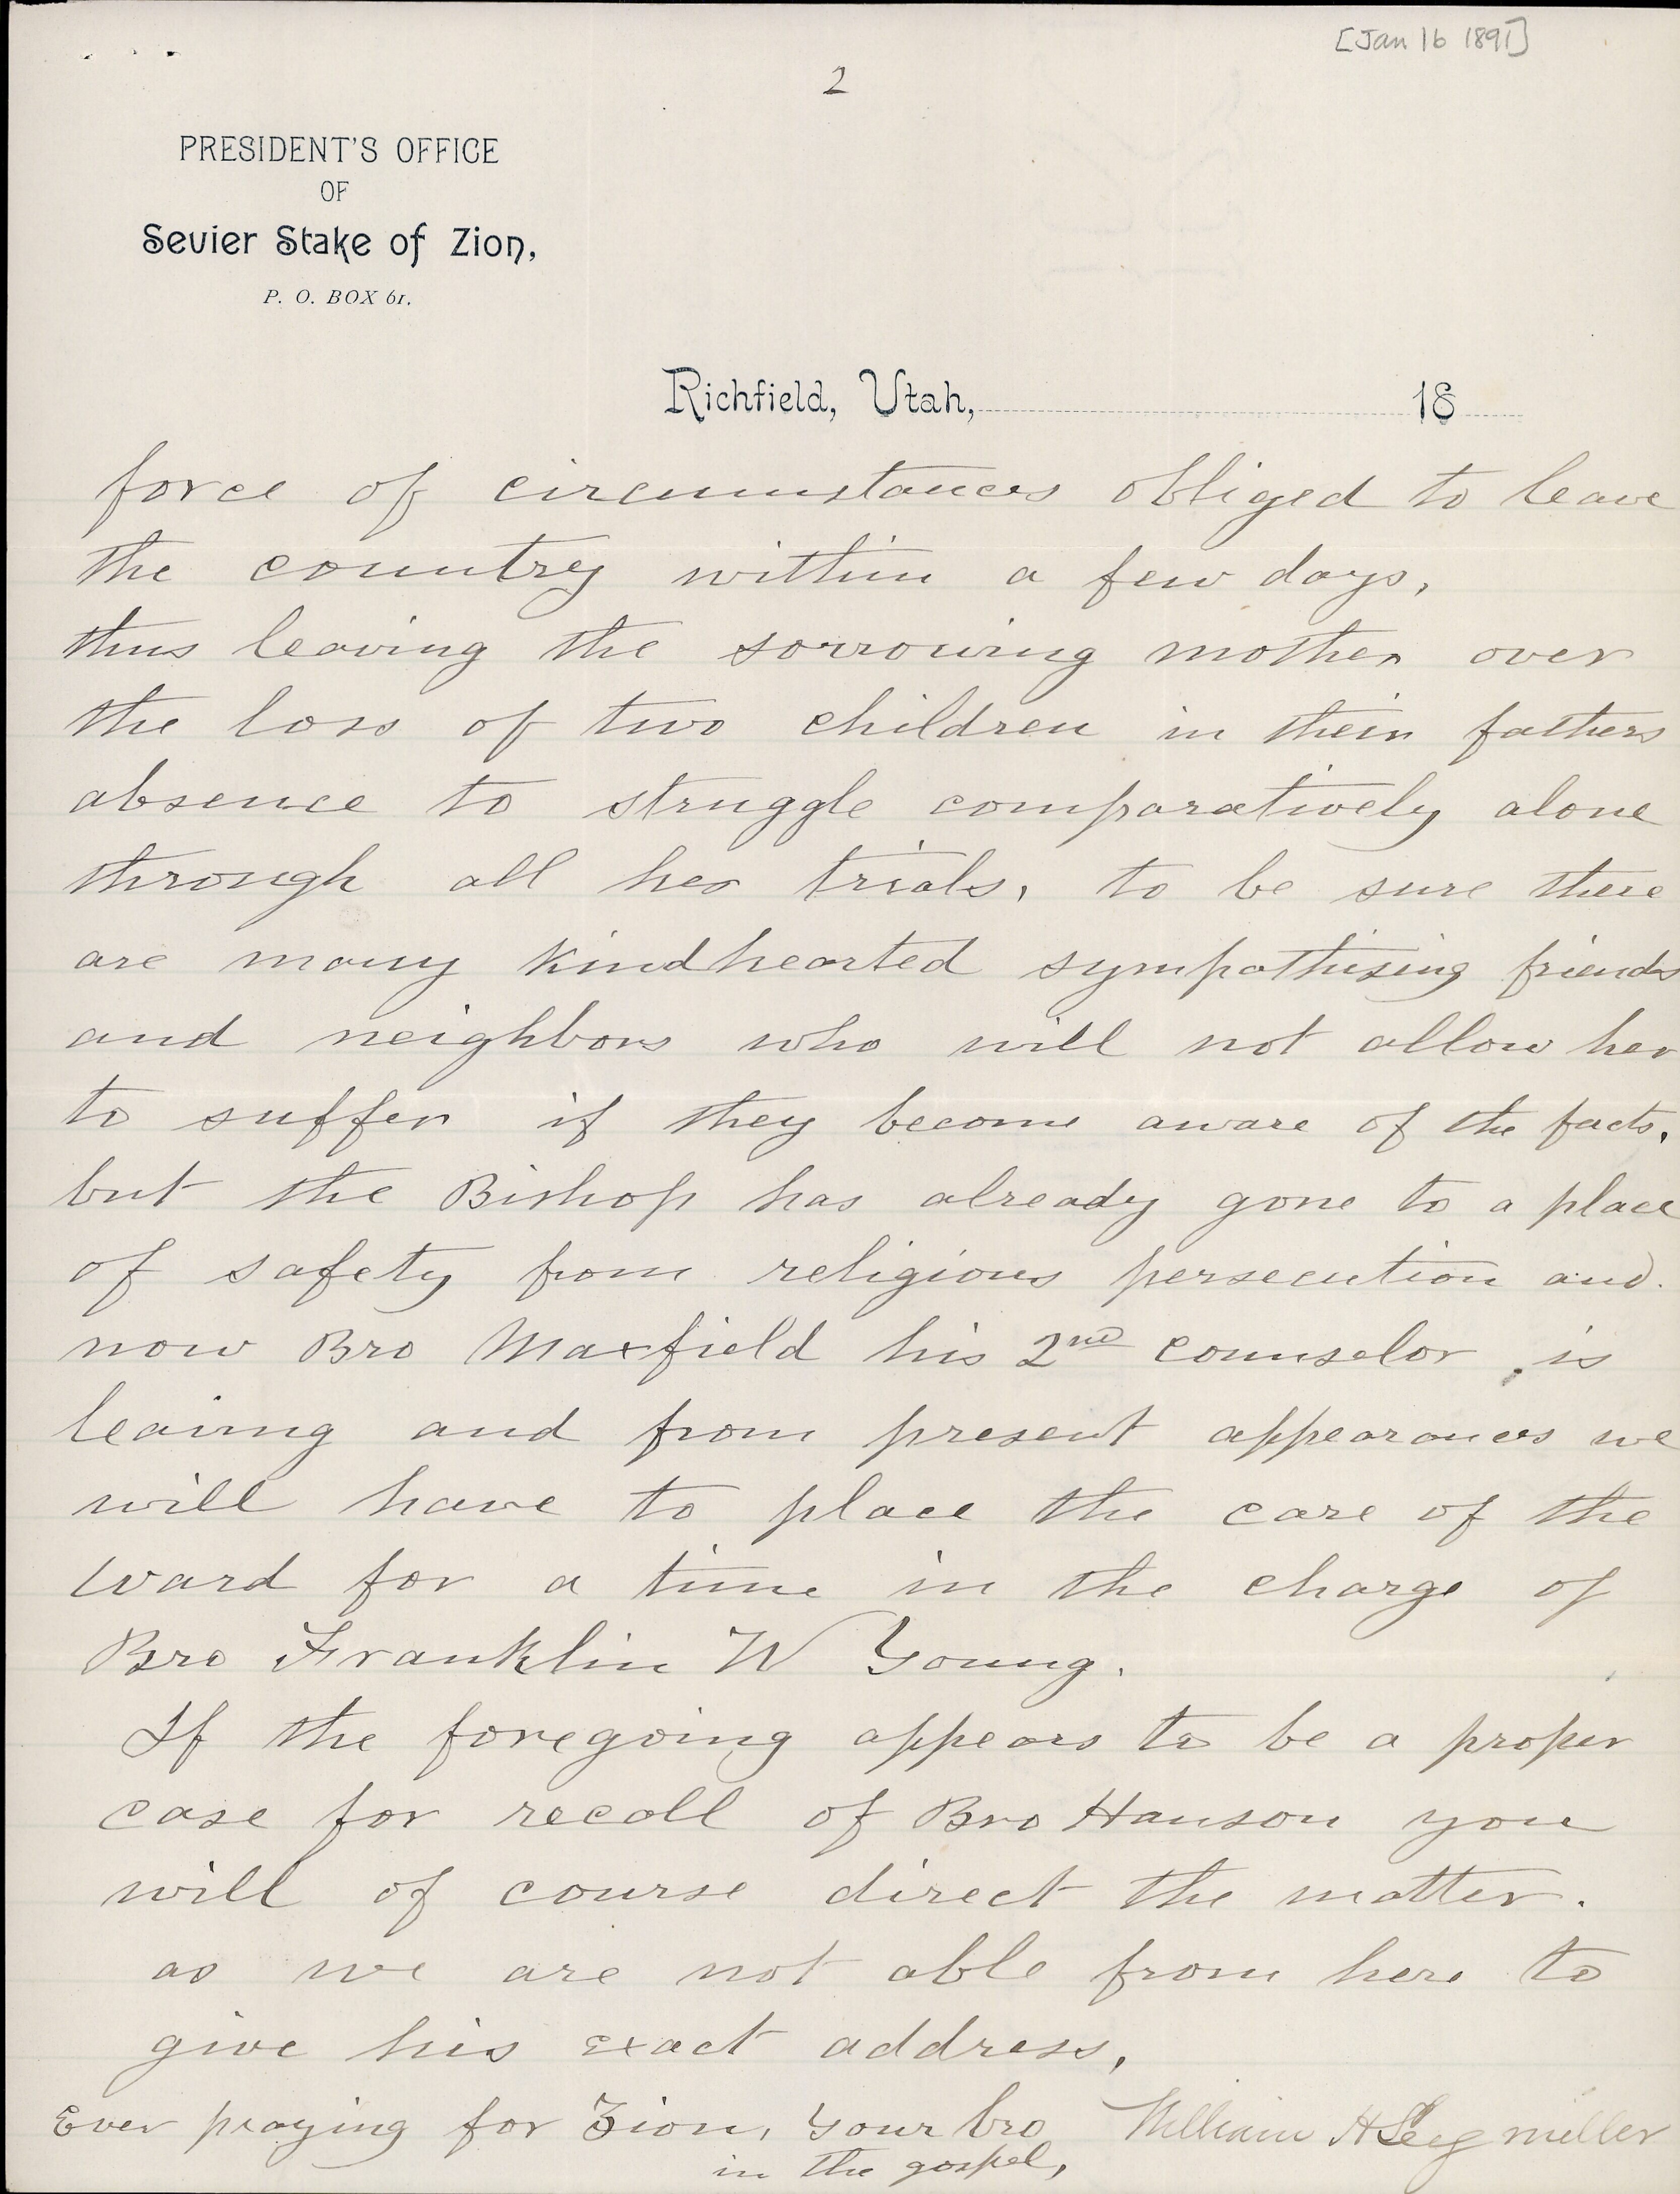 [Jan 16 1891]
2
PRESIDENT'S OFFICE
OF
Sevier Stake of Zion,
P. O. BOX 61.
Richfield, Utah, 18
force of circumstances obliged to leave
the country within a few days,
thus leaving the sorrowing mother over
the loss of two children in their fathers
absence to struggle comparatively alone
through all her trials, to be sure there
are many kindhearted sympathising friends
and neighbors who will not allow her
to suffer if they become aware of the facts,
but the Bishop has already gone to a place
of safety from religious persecution and
now Bro Maxfield his 2nd counselor, is
leaving and from present appearances we
will have to place the care of the
ward for a time in the charge of
Bro Franklin W Young.
If the foregoing appears to be a proper
case for recall of Bro Hanson you
will of course direct the matter.
as we are not able from here to
give his exact address,
Ever praying for Zion, Your bro William H Seegmiller
in the gospel,